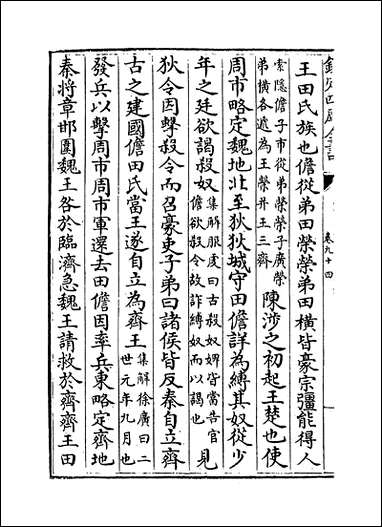 欽定四庫全書
卷九十四
王田氏族也儋從弟田榮榮弟田橫皆豪宗彊能得人
索隱儋子市從弟榮榮子廣榮
弟橫各遞為王榮并王三齊
陳涉之初起王楚也使
周市略定魏地北至狄狄城守田儋詳為縛其奴從少
年之廷欲謁殺奴
集解服虔曰古殺奴婢皆當告官
儋欲殺令故詐縛奴而以謁也
見
狄令因擊殺令而召豪吏子弟曰諸侯皆反秦自立齊
古之建國儋田氏當王遂自立為齊王
集解徐廣曰二
世元年九月也
發兵以擊周市周市軍還去田儋因率兵東略定齊地
秦將章邯圍魏王咎於臨濟急魏王請救於齊齊王田